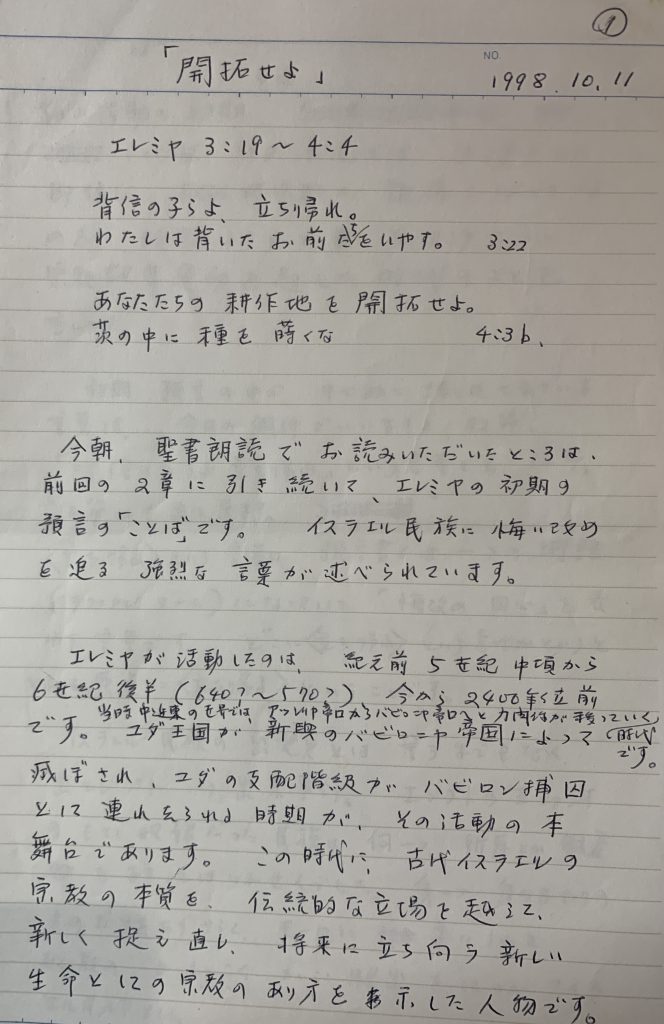 ①
「開拓せよ」
NO.
1998.10.11
エレミヤ 3:19〜4:4
背信の子らよ、立ち帰れ。
わたしは背いたお前たちをいやす。 3:22
あなたたちの耕作地を開拓せよ。
茨の中に種を蒔くな 4:3b.
今朝、聖書朗読でお読みいただいたところは、
前回の2章に引き続いて、エレミヤの初期の
預言の「ことば」です。 イスラエル民族に悔い改め
を迫る強烈な言葉が述べられています。
エレミヤが活動したのは、紀元前5世紀中頃から
6世紀後半(640?〜570?) 今から2400年位前
当時中近東の世界では、アッシリヤ帝国からバビロニヤ帝国へと力関係が移っていく
時代です。
です。 ユダ王国が新興のバビロニヤ帝国によって
滅ぼされ、ユダの支配階級がバビロン捕囚
として連れ去られる時期が、その活動の本
舞台であります。 この時代に、古代イスラエルの
宗教の本質を、伝統的な立場を越えて、
新しく捉え直し、将来に立ち向う新しい
生命としての宗教のあり方を表示した人物です。